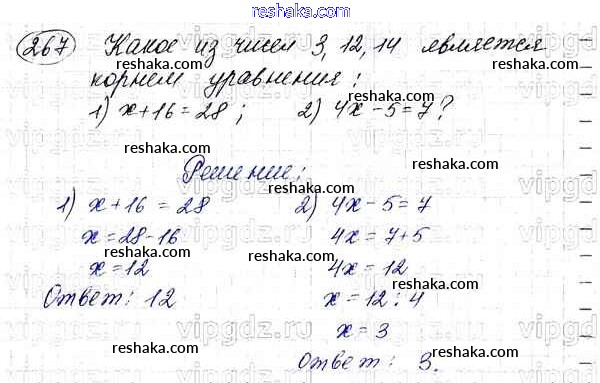 reshaka.com
267 Какое из чисел 3, 12, 14 является
корнем уравнения:
1) x+16=28; 2) 4x-5=7?
Решение:
1) x+16=28
x=28-16
x=12
Ответ: 12
2) 4x-5=7
4x=7+5
4x=12
x=12:4
x=3
Ответ: 3.
reshaka.com
reshaka.com
reshaka.com
reshaka.com
reshaka.com
reshaka.com
reshaka.com
reshaka.com
reshaka.com
reshaka.com
reshaka.com
reshaka.com
vipgdz.ru